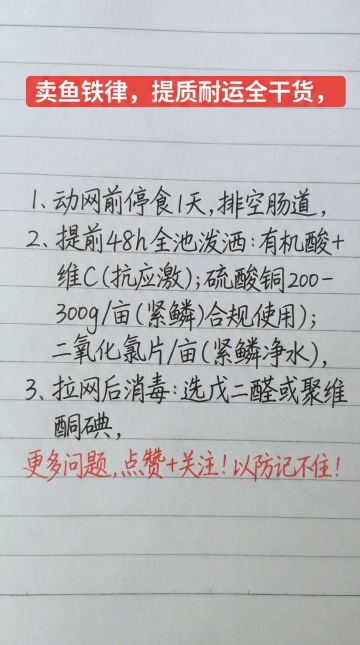 卖鱼铁律，提质耐运全干货，
1、动网前停食1天,排空肠道,
2、提前48h全池泼洒:有机酸+
维C(抗应激);硫酸铜200-
300g/亩(紧鳞)合规使用);
二氧化氯片/亩(紧鳞净水),
3、拉网后消毒:选戊二醛或聚维
酮碘,
更多问题,点赞+关注!以防记不住!